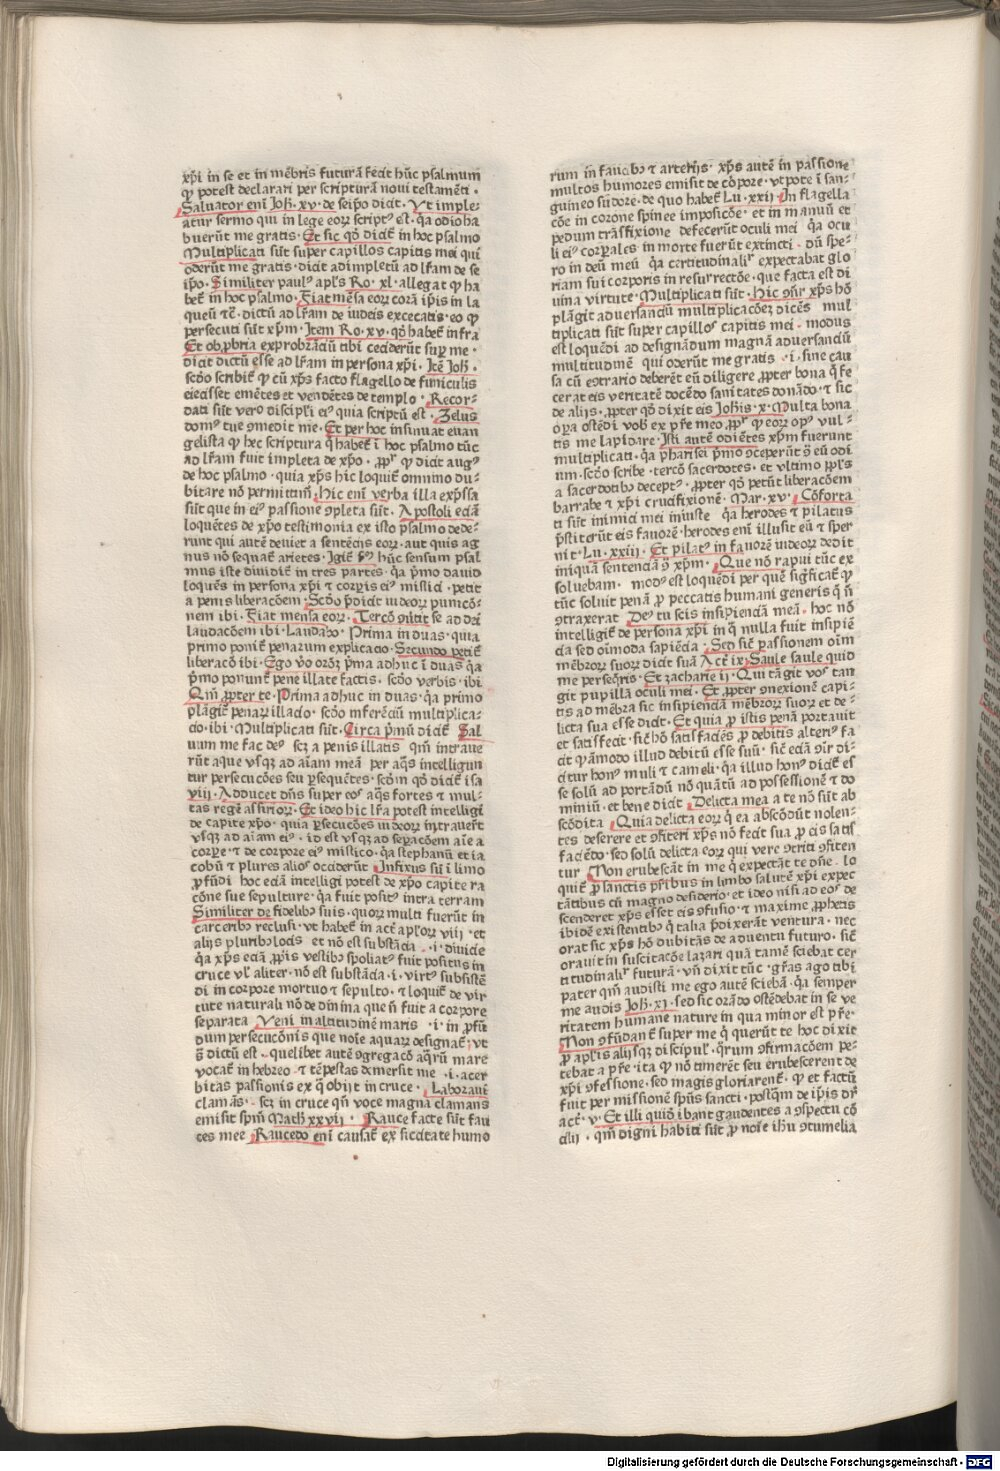 xp̄i in se et in mēbris futurā fecit hūc psalmum
ꝙ potest declarari per scripturā noui testamēti ·
Saluator enī Joh̄ · xv · de seip̄o dicit · Vt imple⸗
atur sermo qui in lege eoꝝ scriptꝰ est · q̄a odio ha
buerūt me gratis · Et sic qd̄ dicit̄ in hoc psalmo
Multiplicati sūt super capillos capitis mei qui
oderūt me gratis · dicit adimpletū ad lr̄am de se
ip̄o · Similiter paulꝰ apl̄s Ro · xi · allegat ꝙ ha
bet̄ in hoc psalmo · Fiat mēsa eoꝝ corā ip̄is in la
queū ⁊c̄ · dictū ad lr̄am de iudeis excecatis · eo ꝙ
persecuti sūt xp̄m · Item Ro · xv · qd̄ habet̄ infra
Et obp̱bria exprobrādiū tibi ceciderūt suꝑ me ·
dicit dictū esse ad lr̄am in persona xp̄i · Itē Joh̄ ·
scd̄o scribit̄ ꝙ cū xp̄s facto flagello de funiculis
eiecisset emētes et vendētes de templo · Recor⸗
dati sūt vero discipli eiꝰ quia scriptū est · Zelus
domꝰ tue ꝯmedit me · Et per hoc insinuat euan
gelista ꝙ hec scriptura q̄ habet̄ ī hoc psalmo tūc
ad lr̄am fuit impleta de xp̄o · ꝓpt̄ ꝙ dicit augꝰ
de hoc psalmo · quia xp̄s hic loquit̄ omnino du⸗
bitare nō permittimꝰ · hic enī verba illa exp̄ssa
sūt que in eiꝰ passione ꝯpleta sūt · Apostoli eciā
loquētes de xp̄o testimonia ex isto psalmo dede⸗
runt qui autē deuiet a sentēciis eoꝝ · aut quis ag
nus nō sequat̄ arietes · Igit̄ hūc sensum psal
mus iste diuidit̄ in tres partes · q̄a p̄mo dauid
loquēs in persona xp̄i ⁊ corꝑis eiꝰ mistici · petit
a penis liberacōem · Scd̄o p̄dicit iudeoꝝ punicō⸗
nem ibi · Fiat mensa eoꝝ · Tercō ꝯu̇tit se ad dei
laudacōem ibi · Laudabo · Prima in duas · quia
primo ponit̄ penarum explicacio · Secundo petit̄
liberacō ibi · Ego v̄o or̄oꝫ p̄ma adhuc ī duas q̄a
p̄mo ponunt̄ pene illate factis · scd̄o verbis · ibi
Qm̄ ꝓpter te · Prima adhuc in duas · q̄a primo
plāgit̄ penaꝝ illacio · scd̄o inferēciū multiplica⸗
cio · ibi · Multiplicati sūt · Circa p̄mū dicit̄ · Sal
uum me fac deꝰ scꝫ a penis illatis qm̄ intraue
rūt aque vsqꝫ ad aīam meā per aq̄s intelligun
tur persecucōes seu ꝑsequētes · scd̄m qd̄ dicit̄ isa
viij · Adducet dn̄s super eos aq̄s fortes ⁊ mul⸗
tas regē assirioꝝ · Et ideo hic lr̄a potest intelligi
de capite xp̄o · quia ꝑsecucōes iudeoꝝ intrauerūt
vsqꝫ ad aīam eiꝰ · id est vsqꝫ ad seꝑacōem aīe a
corꝑe · ⁊ de corpore eiꝰ mistico · q̄a stephanū et ia
cobū ⁊ plures alios occiderūt · Infixus sū ī limo
ꝓfūdi hoc eciā intelligi potest de xp̄o capite ra
cōne sue sepulture · q̄a fuit positꝰ intra terram
Similiter de fidelibꝰ suis · quoꝝ multi fuerūt in
carceribꝰ reclusi · vt habet̄ in act̄ apl̄oꝝ viij · et
alijs pluribꝰ locis et nō est substācia · i · diuicie
q̄a xp̄s eciā ꝓpr̄is vestibꝰ spoliatꝰ fuit positus in
cruce vl̓ aliter · nō est substācia · i · virtꝰ subsistē
di in corpore mortuo ⁊ sepulto · ⁊ loquit̄ de vir
tute naturali nō de diuina que n̄ fuit a corpore
separata Veni in altitudinē maris · i · in ꝓfū
dum persecucōnis que noīe aquaꝝ designat̄; vt
g̃ dictū est · quelibet autē ꝯgregacō aq̄rū mare
vocat̄ in hebreo · ⁊ tēpestas demersit me · i · acer
bitas passionis ex q̄ obijt in cruce · Laboraui
clamās · scꝫ in cruce qn̄ voce magna clamans
emisit sp̄m Math̄ xxvij · Rauce facte sūt fau
ces mee Raucedo enī causat̄ ex siccitate humo
rum in faucibꝰ ⁊ arterijs · xp̄s autē in passione
multos humores emisit de corpore · vtpote ī san⸗
guineo sudore · de quo habet̄ Lu · xxij · In flagella
cōe in corone spinee imposicōe · et in manuū et
pedum trāsfixione defecerūt oculi mei q̄a ocu
li eiꝰ corꝑales in morte fuerūt extincti · dū spe⸗
ro in deū meū q̄a certitudinalit̓ expectabat glo
riam sui corporis in resurrectōe · que facta est di
uina virtute · Multiplicati sūt · Hic ꝯn̄r xp̄s hō
plāgit aduersanciū multiplicacōeꝫ dicēs mul
tiplicati sūt super capillos capitis mei · modus
est loquēdi ad designādum magnā aduersanciū
multitudinē qui oderūt me gratis · i · sine cau
sa cū econtrario deberēt eū diligere ꝓpter bona q̄ fe
cerat eis veritatē docēdo sanitates donādo · ⁊ sic
de alijs · ꝓpter qd̄ dixit eis Joh̄is · x · Multa bona
oꝑa ostēdi vob̄ ex pr̄e meo · ꝓpt̄ qd̄ eoꝝ opꝰ vul⸗
tis me lapidare · Isti autē odiētes xp̄m fuerunt
multiplicati · q̄a pharisei p̄mo ꝯceperūt ꝯ̇ eū odi
um · scd̄o scribe · tercō sacerdotes · et vltimo ppl̄s
a sacerdotibꝰ deceptꝰ · ꝓpter qd̄ petiit liberacōem
barrabe ⁊ xp̄i crucifixionē · Mar · xv · Cōforta
ti sūt inimici mei iniuste q̄a herodes ⁊ pilatus
p̄stiterūt eis fauorē · herodes enī illusit eū ⁊ spre
uit · Lu · xxiij · Et pilatꝰ in fauorē iudeoꝝ dedit
iniquā sentenciā ꝯ̇ xp̄m · Que nō rapui tūc ex
soluebam · modꝰ est loquēdi per quē sig̓ficat̄ ꝙ
tūc soluit penā ꝓ peccatis humani generis q̄ n̄
ꝯtraxerat Deꝰ tu scis insipienciā meā · hoc nō
intelligit̄ de persona xp̄i in q̄ nulla fuit insipiē
cia sed oīmoda sapiēcia · Sed sic̄ passionem oīm
mēbroꝝ suoꝝ dicit suā Act̄ ix · Saule saule quid
me perseq̄ris · Et zacharie ij · Qui tāgit vos tan
git pupillā oculi mei · Et ꝓpter ꝯnexionē capi⸗
tis ad mēbra sic insipienciā mēbroꝝ suoꝝ et de⸗
licta sua esse dicit · Et quia ꝓ istis penā portauit
et satisfecit · sic̄ hō satisfaciēs ꝓ debitis alteriꝰ fa
cit q̄ammodo illud debitū esse suū · sic̄ eciā ꝯn̄r di⸗
citur honꝰ muli ⁊ cameli · q̄a illud honꝰ dicit̄ es
se solū ad portādū nō quātū ad possessionē ⁊ do
miniū · et bene dicit Delicta mea a te nō sūt ab
scōdita · Quia delicta eoꝝ q̄ ea abscōdūt nolen⸗
tes deserere et ꝯfiteri xp̄s nō fecit sua ꝓ eis satis
faciēdo · sed solū delicta eoꝝ qui vere ꝯtriti ꝯfiten
tur Non erubescāt in me q̄ expectāt te dn̄e · lo
quit̄ ꝓ sanctis pr̄ibus in limbo salutē xp̄i expec
tātibus cū magno desiderio · et ideo nisi ad eos de
scenderet xp̄s esset eis ꝯfusio · ⁊ maxime ꝓphetis
ibidē existentibꝰ q̄ talia p̄dixerāt ventura · nec
orat sic xp̄s hō dubitās de aduentu futuro · sic̄
orauit in suscitacōe lazari quā tamē sciebat cer
titudinalit̓ futurā · vn̄ dixit tūc · gr̄as ago tibi
pater qm̄ audisti me ego autē sciebā · q̄a semper
me audis Joh̄ · xi · sed sic orādo ostēdebat in se ve
ritatem humane nature in qua minor est pr̄e ·
Non ꝯfūdant̄ super me q̄ querūt te hoc dixit
ꝓ apl̄is alijsqꝫ discipul̓ · q̄rum ꝯfirmacōem pe⸗
tebat a pr̄e · ita ꝙ nō timerēt seu erubescerent de
xp̄i ꝯfessione · sed magis gloriarent̄ · ꝙ et factū
fuit per missionē sp̄us sancti · postq̄m de ip̄is dr̄
act̄ · v · Et illi quidē ibant gaudentes a ꝯspectu cō
cilij · qm̄ digni habiti sūt ꝓ noīe ihū ꝯtumelia
Digitalisierung gefördert durch die Deutsche Forschungsgemeinschaft · DFG